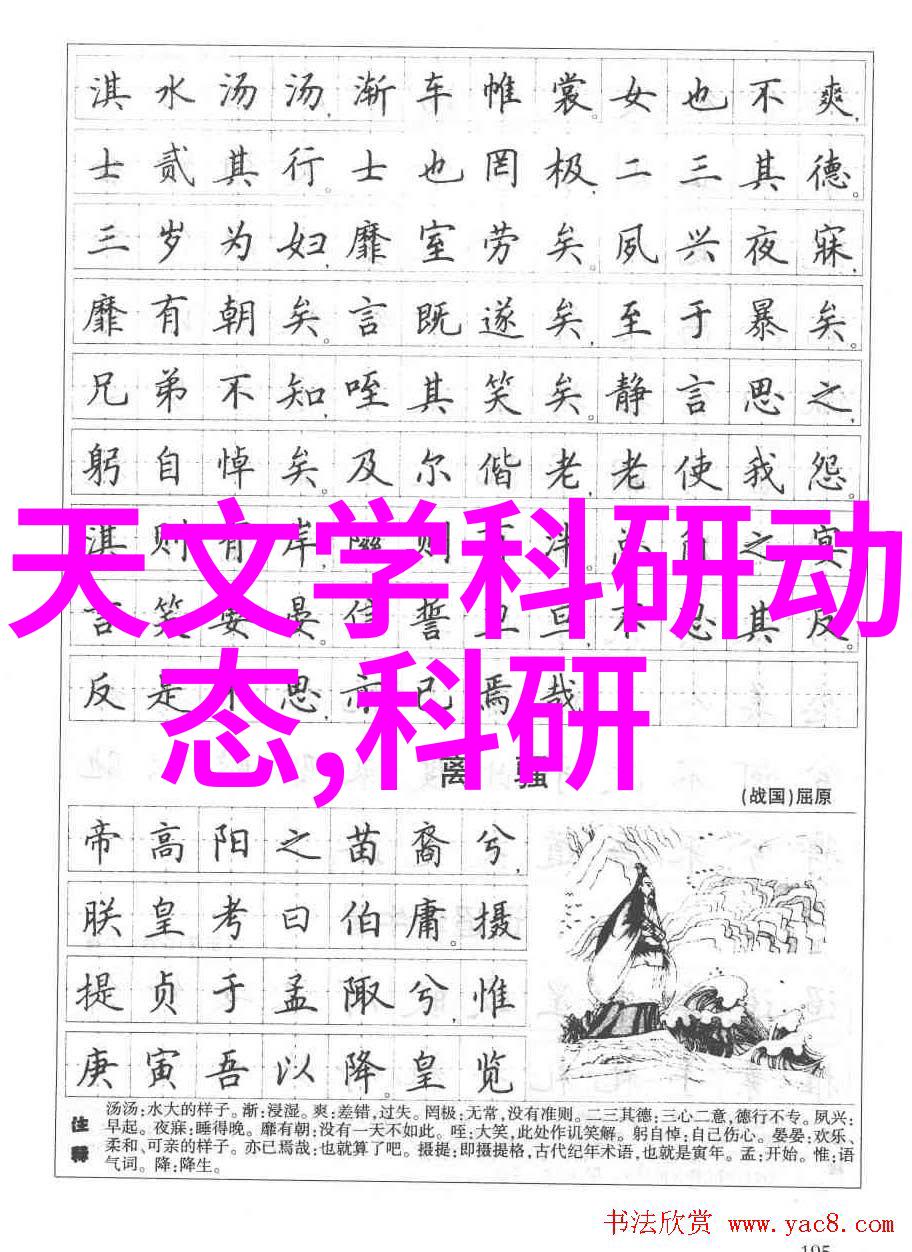 淇水汤汤,渐车帷裳。女也不爽,
士贰其行。士也罔极,二三其德。
三岁为妇,靡室劳矣。夙兴夜寐,
靡有朝矣。言既遂矣,至于暴矣。
兄弟不知,咥其笑矣。静言思之,
躬自悼矣。及尔偕老,老使我怨。
淇则有岸,隰则有泮。总角之宴,
天文学科研动
言笑晏晏。信誓旦旦,不思其反。
反是不思,亦已焉哉
态,科研
离骚
(战国)屈原
帝高阳之苗裔兮,
朕皇考曰伯庸。摄
提贞于孟陬兮,惟
庚寅吾以降。皇览
注释
汤汤:水大的样子。渐:浸湿。爽:差错,过失。罔极:无常,没有准则。二三其德:三心二意,德行不专。夙兴:
早起。夜寐:睡得晚。靡有朝:没有一天不如此。咥:大笑,此处作讥笑解。躬自悼:自己伤心。晏晏:欢乐、
柔和、可亲的样子。亦已焉哉:也就算了吧。摄提:即摄提格,古代纪年术语,也就是寅年。孟:开始。惟:语
气词。降:降生。
书法欣赏 www.yac8.com
195